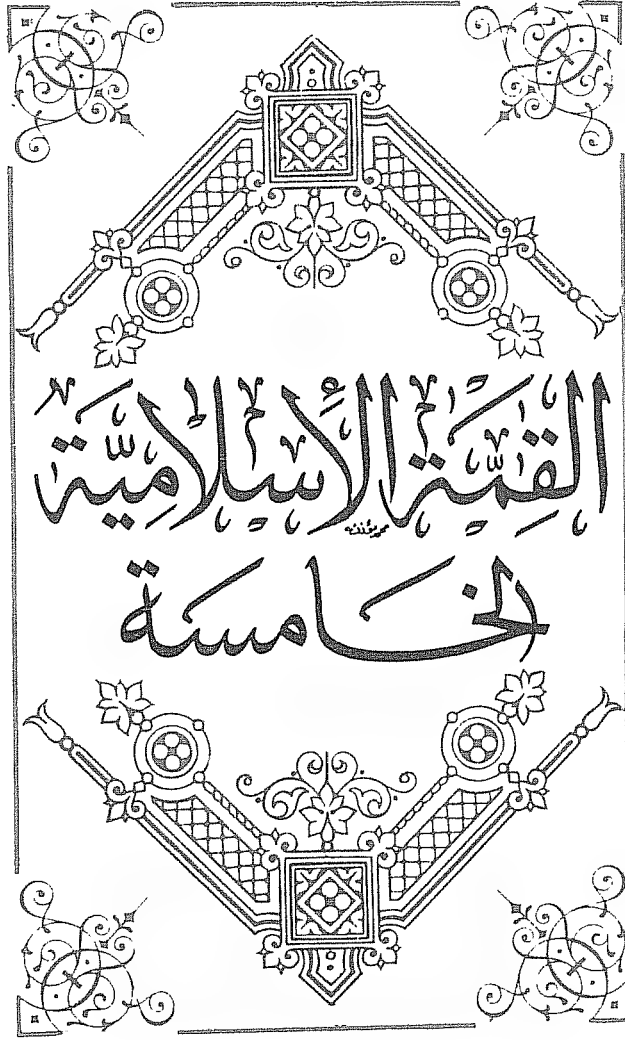 القِمَّة الأِسْلامِيَّة
الخامسة